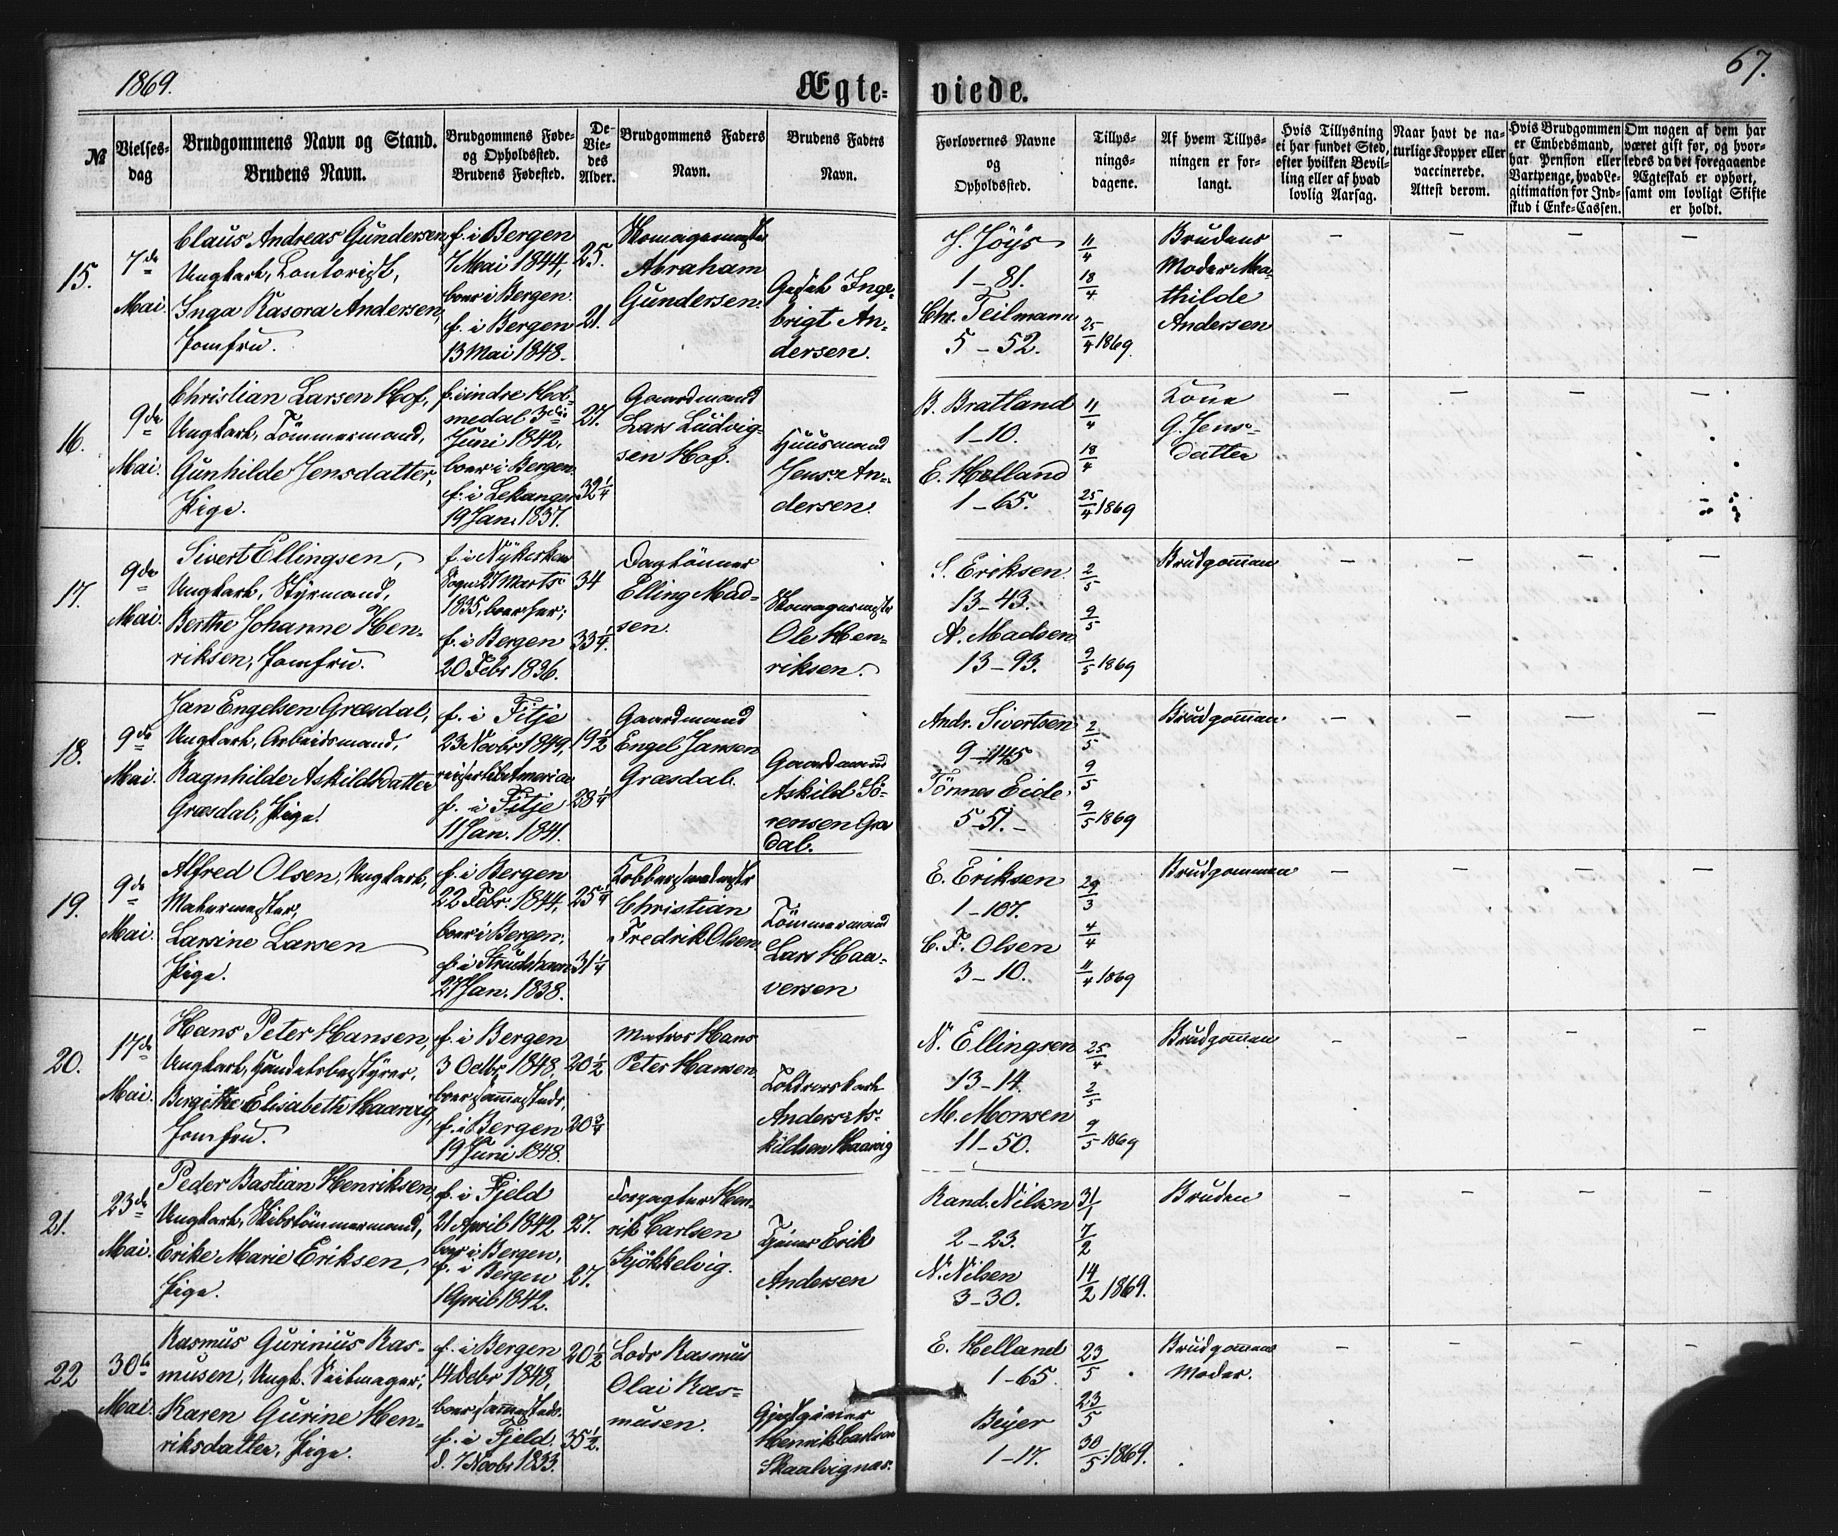 1869.
Ægte-
viede.
67.
№
Vielses-
dag
Brudgommens Navn og Stand.
Brudens Navn.
Brudgommens Føde-
og Opholdssted.
Brudens Fødested.
De-
Vie-
des
Alder.
Brudgommens Faders
Navn.
Brudens Faders
Navn.
Forlovernes Navne
og
Opholdssted.
Tillys-
nings-
dagene.
Af hvem Tillys-
ningen er for-
langt.
Hvis Tillysning
ei har fundet Sted,
efter hvilken Bevil-
ling eller af hvad
lovlig Aarsag.
Naar havt de na-
turlige Kopper eller
vaccinerede.
Attest derom.
Hvis Brudgommen
er Embedsmand,
har Pension eller
Vartpenge, hvad Le-
gitimation for Ind-
skud i Enke-Cassen.
Om nogen af dem har
været gift før, og hvor-
ledes da det foregaaende
Ægteskab er ophørt,
samt om lovligt Skifte
er holdt.
15.
7de
Mai.
Claus Andreas Gundersen
Ungkarl, Contorist,
Inga Kasora Andersen,
Jomfru.
f. i Bergen
7 Mai 1844,
boer i Bergen.
f. i Bergen
13 Mai 1848.
25.
21.
Skomagermester
Abraham
Gundersen.
Inge-
brigt An-
dersen.
J. Jöys
1-81.
Chr. Teilmann
5-52.
11/4
18/4
25/4 1869.
Brudens
Moder Ma-
thilde
Andersen
16.
9de
Mai.
Christian Larsen Hof,
Ungkarl, Tömmermand,
Gunhilde Jensdatter,
Pige.
f. i indre Hol-
medal 3die
Juni 1842,
boer i Bergen.
f. i Lekanger
19 Jan. 1837.
27.
32 1/4
Gaardmand
Lars Ludvig-
sen Hof.
Huusmand
Jens An-
dersen.
B. Bratland
1-10.
E. Helland
1-65.
11/4
18/4
25/4 1869
Kone
G. Jens-
datter
17.
9de
Mai.
Sivert Ellingsen,
Ungkarl, Styrmand,
Berthe Johanne Hen-
riksen, Jomfru.
f. i Nykirkens
Sogn 27 Marts
1835, boer her;
f. i Bergen
20 Febr 1836.
34
33 1/4.
Dagtönner
Elling Mad-
sen.
Skomagermester
Ole Hen-
riksen.
S. Eriksen.
13-43.
A. Madsen
13-93.
2/5
9/5
9/5 1869
Brudgommen
18.
9de
Mai.
Jan Engelsen Græsdal,
Ungkarl, Arbeidsmand,
Ragnhilde Askildsdatter
Græsdal, Pige.
f. i Fitje
23 Novbr 1849,
reiser til Amerika
f. i Fitje
11 Jan. 1841.
19 1/2
28 1/4
Gaardmand
Engel Jansen
Græsdal.
Gaardmand
Askild Sö-
rensen Græ
dal.
Andr. Sivertsen
9-445
Tönnes Eide,
5-51.-
2/5
9/5
9/5 1869
Brudgommen.
19.
9de
Mai.
Alfred Olsen, Ungkarl,
Malermester,
Lavine Larsen
Pige.
f. i Bergen
22 Febr. 1844,
boer i Bergen.
27 Jan. 1838.
25 1/4
31 1/4
Kobbersmedmester
Christian
Fredrik Olsen
Tömmermand
Lars Haa-
versen
E. Eriksen
1-107.
C. F. Olsen
3-10.
29/3
4/4
11/4 1869
Brudgommen
20.
17de
Mai.
Hans Peter Hansen,
Ungkarl, Handelsbestyrer,
Bergithe Elisabeth Haavig,
Jomfru.
f. i Bergen
3 Octbr 1848,
boer sammesteds,
f. i Bergen
19 Juni 1848.
20 1/2
20 3/4
Matros Hans
Peter Hansen.
Anders As-
kildsen Haavig
N. Ellingsen
13-14.
M. Monsen
11-50.
25/4
2/5
9/5 1869
Brudgommen
21.
23de
Mai.
Peder Bastian Henriksen,
Ungkarl, Skibstömmermand,
Erike Marie Eriksen,
Pige.
f. i Fjeld
21 April 1842
boer i Bergen,
f. i Bergen
1 April 1842.
27.
27.
Forpagter Hen-
rik Carlsen
Kjökkelvig.
Erik
Andersen
Rand. Nilsen
2-23.
N. Nilsen
3-30.
31/1
7/2
14/2 1869.
Bruden
22
30te
Mai.
Rasmus Gurinius Ras-
musen, Ungk. Seilmager,
Karen Gurine Hen-
riksdatter, Pige.
f. i Bergen
14 Debr 1848,
boer sammesteds.
f. i Fjeld.
d. 7 Novbr 1833.
20 1/2
35 1/2.
Lods Rasmus
Olai Ras-
musen.
Gjestgiver
Henrik Carlsen
Skaalvignæs.
E. Helland
1-65.
Beyer
1-17.
23/5
23/5
30/5 1869.
Brudgommens
Moder.